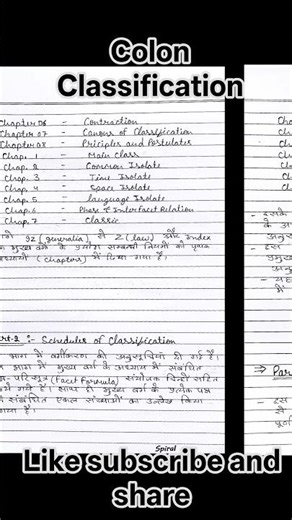 Colon
Classification
Chapter 06 - Contraction
Chapter 07 - Canons of Classification
Chapter 08 - Priciples and Postulates
Chap. 1 - Main Class
Chap. 2 - Common Isolate
Chap. 3 - Time Isolate
Chap. 4 - Space Isolate
Chap. 5 - language Isolate
Chap. 6 - Phase & Interfacet Relation
Chap. 7 - Classic
9z (generalia) से Z (law) और Index
मुख्य वर्ग के उपयोग सम्बन्धी नियमों को पृथक
अध्यायों (chapters) में दिया गया है।
Part-2 :- Schedules of Classification
भाग में वर्गीकरण की अनुसूचियाँ दी गई हैं।
भाग में मुख्य वर्ग के अध्याय में संबंधित
परिसूत्र (Facet Formula) संयोजक चिन्हों सहित
गये हैं। साथ ही मुख्य वर्ग के प्रत्येक पक्ष
संबंधित एकल संख्याओं का उल्लेख किया
गया है।
Spiral
इसके
के
अनुस
इस
मुख्य
अनु
में
⇒ Par
इस
से
Like subscribe and
share